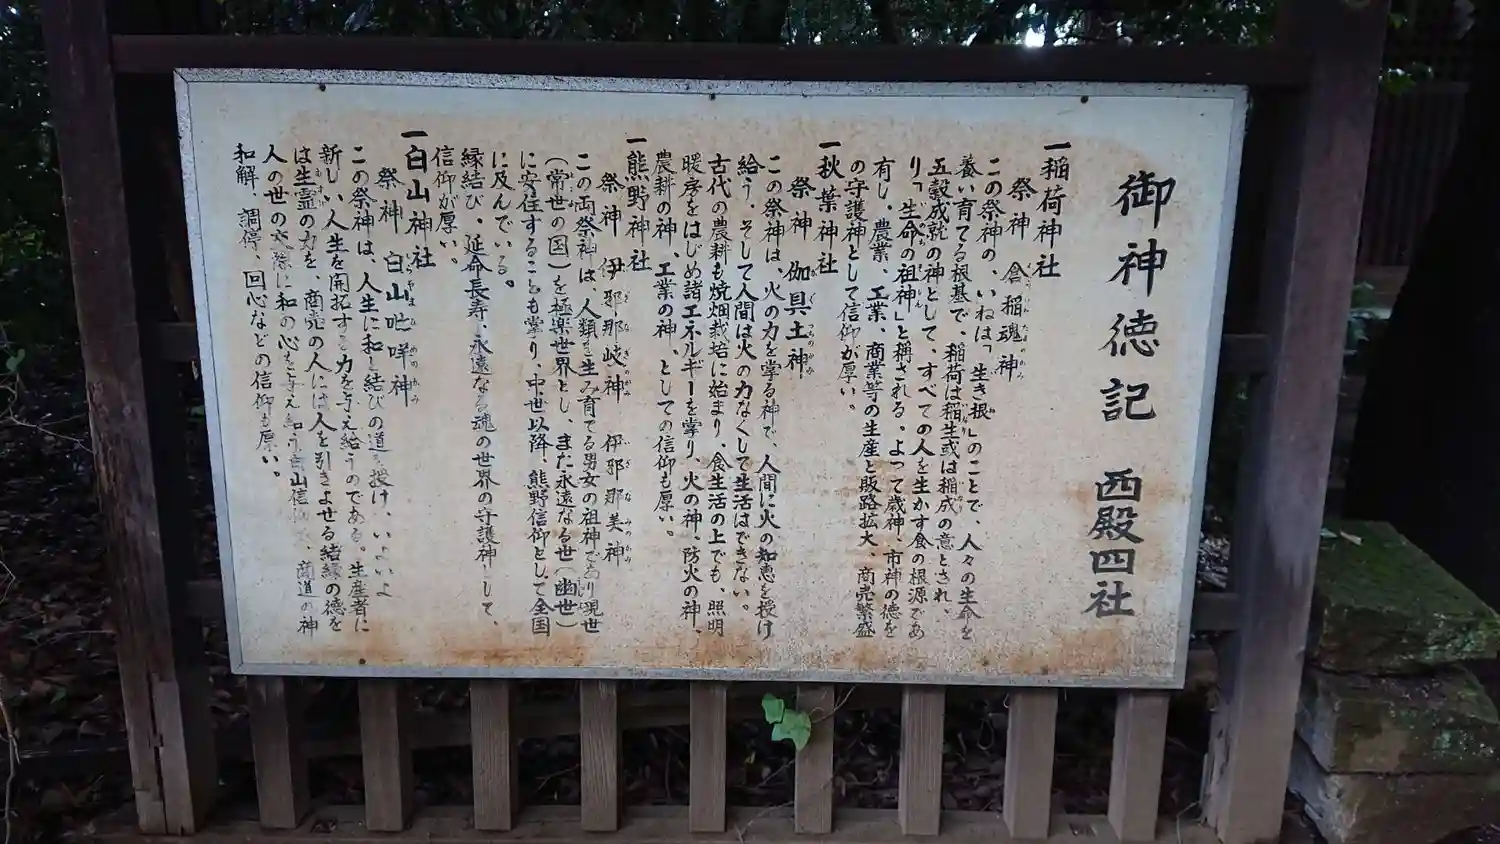 御神徳記 西殿四社
一稲荷神社
祭神 倉稲魂神
この祭神の、いねは「生き根」のことで、人々の生命を
養い育てる根基で、稲荷は稲生或は稲成の意とされ、
五穀成就の神として、すべての人を生かす食の根源であ
り「生命の祖神」と稱される。よって歳神、市神の徳を
有し、農業、工業、商業等の生産と販路拡大、商売繁盛
の守護神として信仰が厚い。
一秋葉神社
祭神 伽具土神
この祭神は、火の力を掌る神で、人間に火の知恵を授け
給う。そして人間は火の力なくして生活はできない。
古代の農耕も焼畑栽培に始まり、食生活の上でも、照明
暖房をはじめ諸エネルギーを掌り、火の神、防火の神、
農耕の神、工業の神、としての信仰も厚い。
一熊野神社
祭神 伊邪那岐神 伊邪那美神
この両祭神は、人類を生み育てる男女の祖神であり現世
(常世の国)を極楽世界とし、また永遠なる世(幽世)
に安住することも掌り、中世以降、熊野信仰として全国
に及んでいる。
縁結び、延命長寿、永遠なる魂の世界の守護神として、
信仰が厚い。
一白山神社
祭神 白山吡咩神
この祭神は、人生に和と結びの道を授け、いよいよ
新しい人生を開拓する力を与え給うのである。生産者に
は生霊の力を、商売の人には人を引きよせる結縁の徳を
人の世の交際に和の心を与え給う白山信仰は、商道の神
和解、調停、回心などの信仰も厚い。